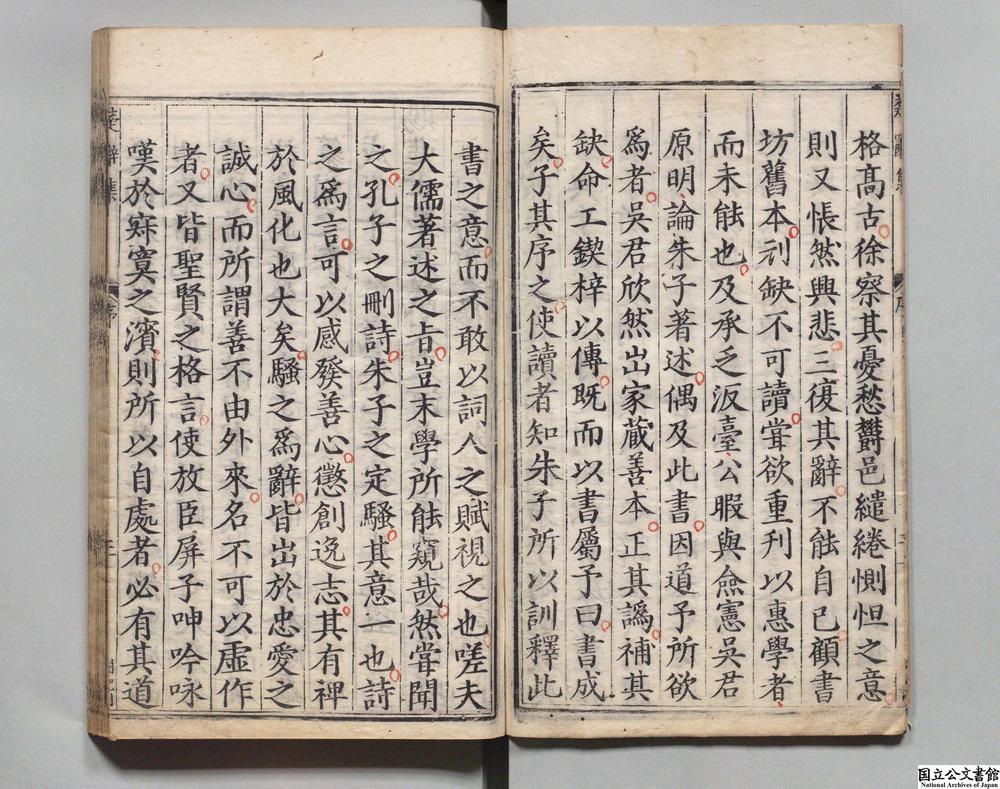 格高古徐察其憂愁欝邑繾綣惻怛之意
則又悵然興悲三復其辭不能自已顧書
坊舊本刓缺不可讀甞欲重刊以惠學者
而未能也及承乏汳臺公暇與僉憲吳君
原明論朱子著述偶及此書因道予所欲
為者吳君欣然出家藏善本正其譌補其
缺命工鍥梓以傳既而以書屬予曰書成
矣子其序之使讀者知朱子所以訓釋此
書之意而不敢以詞人之賦視之也嗟夫
大儒著述之旨豈末學所能窺哉然甞聞
之孔子之刪詩朱子之定騷其意一也詩
之為言可以感發善心懲創逸志其有裨
於風化也大矣騷之為辭皆出於忠愛之
誠心而所謂善不由外來名不可以虛作
者又皆聖賢之格言使放臣屏子呻吟咏
嘆於寂寞之濱則所以自處者必有其道
楚辭集
序
国立公文書館
National Archives of Japan